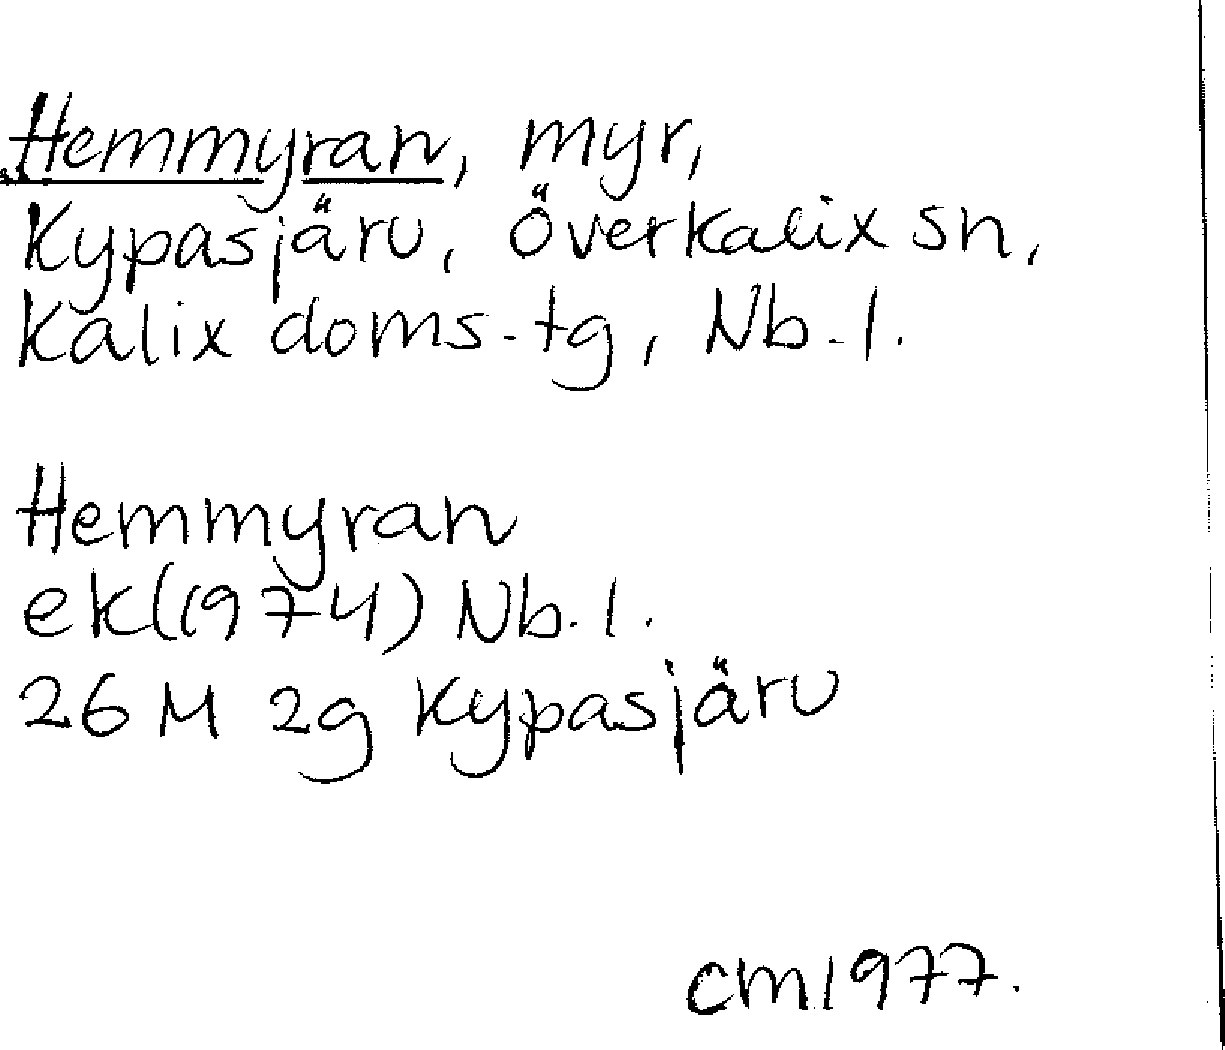 Hemmyran, myr,
Kypasjärv, Överkalix sn,
Kalix doms.tg, Nb.l.
Hemmyran
ek(1974) Nb.l.
26 M 2g Kypasjärv
CM1977.